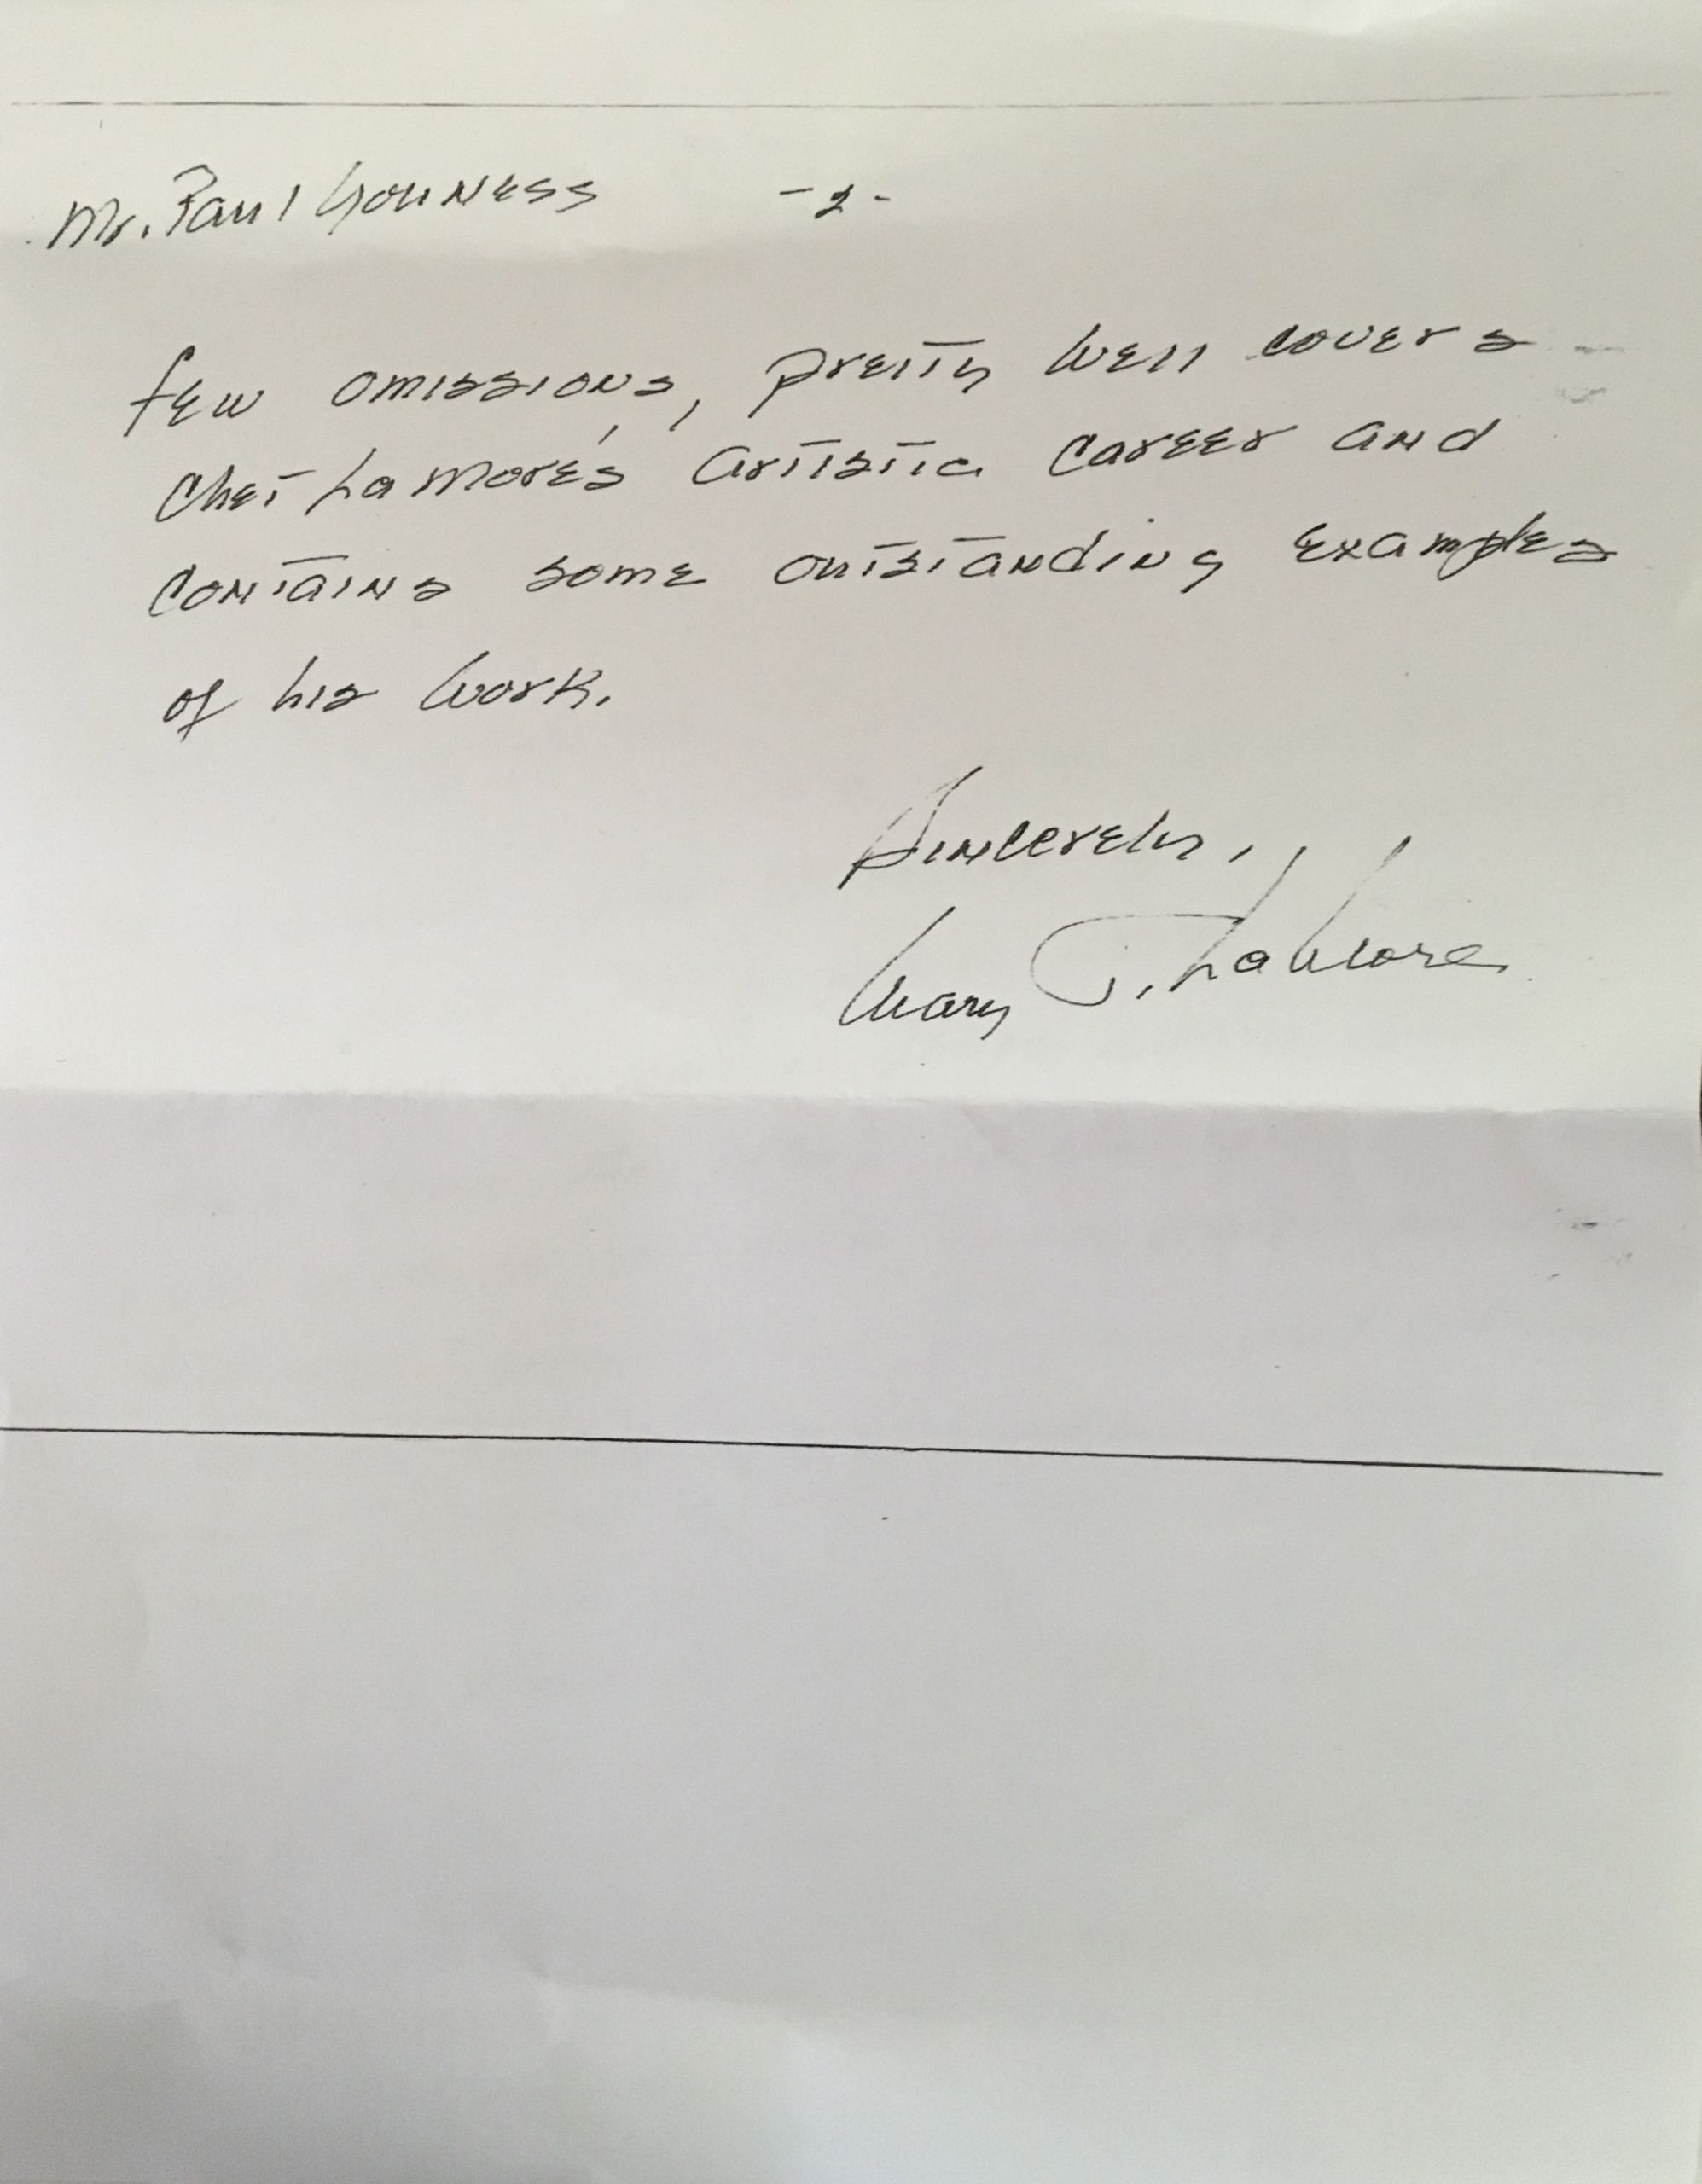 Mr. Paul Youness -2-
few omissions, pretty well covers
Chet La More's artistic career and
contains some outstanding examples
of his work.
Sincerely,
Mary J. La More